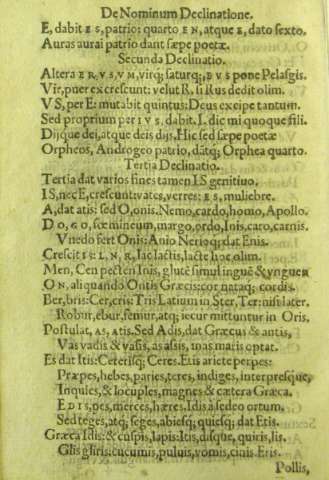 De Nominum Declinatione.
E, dabit ES, patrio: quarto EN, atque E, dato sexto.
Auras aurai patrio dant sæpe poetæ.
Secunda Declinatio.
Altera ER, VS, VM, virq; saturq;, EVS pone Pelasgis.
Vir, puer ex crescunt: velut R, si Rus dedit olim.
VS, per E: mutabit quintus: Deus excipe tantum.
Sed proprium per IVS, dabit I. dic mi quoque fili.
Dijque dei, atque deis dijs, Hic sed sæpe poetæ
Orpheos, Androgeo patrio, datq; Orphea quarto.
Tertia Declinatio.
Tertia dat varios fines tamen IS genitiuo.
IS, nec E, crescunt: vates, verres: ES, muliebre.
A, dat atis: sed O, onis. Nemo, cardo, homo, Apollo.
DO, GO, fœmineum, margo, ordo, Inis, caro, carnis.
Vnedo fert Onis: Anio Nerioq; dat Enis.
Crescit IS: L, N, R, lac lactis, lacte hoc olim.
Men, Cen pecten Inis, glutē simul inguē & vnguen
ON, aliquando Ontis Græcis: cor nataq; cordis.
Ber, bris: Cer, cris: Tris Latium in Ster, Ter: nisi later.
Robur, ebur, femur, atq; iecur mittuntur in Oris.
Postulat, AS, atis. Sed Adis, dat Græcus & antis,
Vas vadis & vasis, as assis, mas maris optat.
Es dat Itis: Cererisq; Ceres. Etis ariete perpes:
Præpes, hebes, paries, teres, indiges, interpresque,
Inquies, & locuples, magnes & cætera Græca.
EDIS, pes, merces, hæres. Idis à sedeo ortum.
Sed teges, atq; seges, abiesq; quiesq; dat Etis.
Græca Idis: & cuspis, lapis: Itis, disque, quiris, lis.
Glis gliris: cucumis, puluis, vomis, cinis Eris.
Pollis,